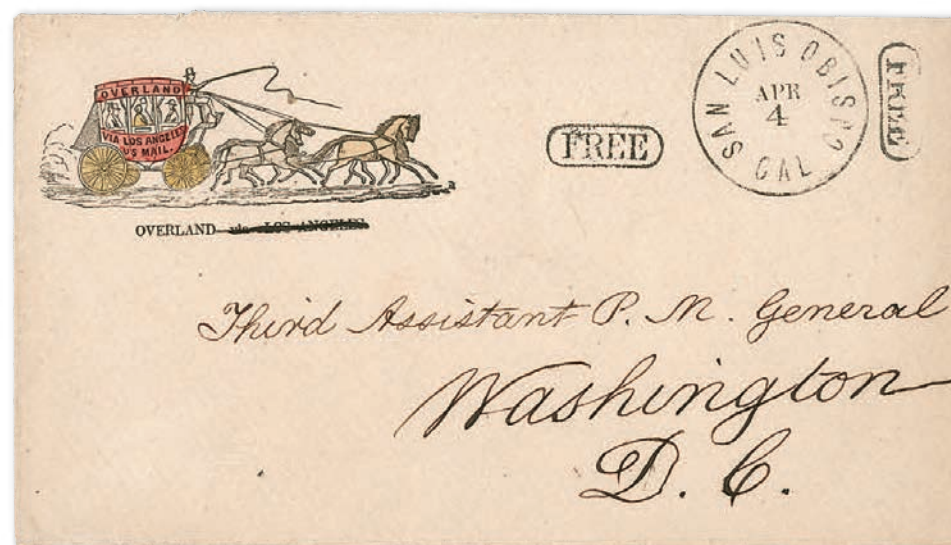 OVERLAND
VIA LOS ANGELES
U S MAIL.
OVERLAND via LOS ANGELES
FREE
SAN LUIS OBISPO
APR
4
CAL
FREE
Third Assistant P. M. General
Washington
D. C.